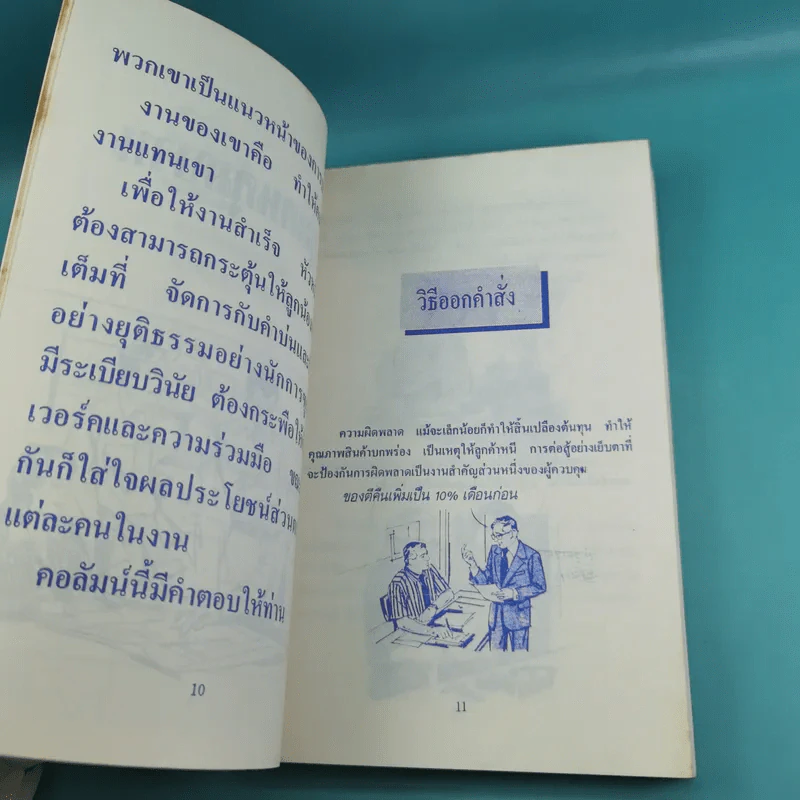 พวกเขาเป็นแนวหน้าของการ
งานของเขาคือ ทำให้
งานแทนเขา
เพื่อให้งานสำเร็จ
ต้องสามารถกระตุ้นให้ลูกน้อง
เต็มที่ จัดการกับคำบ่นและ
อย่างยุติธรรมอย่างนักการ
มีระเบียบวินัย ต้องกระพือให้
เวอร์คและความร่วมมือ
กันก็ใส่ใจผลประโยชน์ส่วน
แต่ละคนในงาน
คอลัมน์นี้มีคำตอบให้ท่าน
10
วิธีออกคำสั่ง
ความผิดพลาด แม้จะเล็กน้อยก็ทำให้สิ้นเปลืองต้นทุน ทำให้
คุณภาพสินค้าบกพร่อง เป็นเหตุให้ลูกค้าหนี การต่อสู้อย่างเย็บตาที่
จะป้องกันการผิดพลาดเป็นงานสำคัญส่วนหนึ่งของผู้ควบคุม
ของตีคืนเพิ่มเป็น 10% เดือนก่อน
11